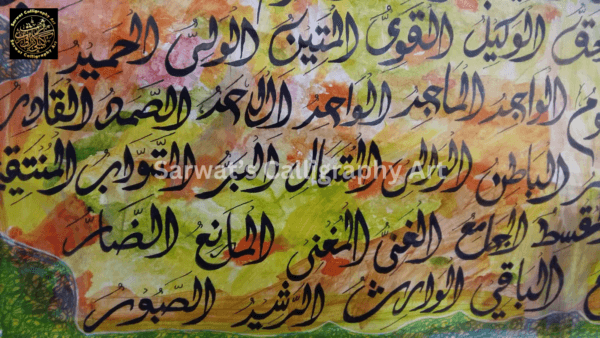 الوكيل القوى المتين الولى الحميد
الواجد الماجد الواحد الاحد الصمد القادر
الباطن الوالى المتعال البر التواب
الجامع الغنى المغنى المانع الضار
الباقي الوارث الرشيد الصبور
Sarwat's Calligraphy Art